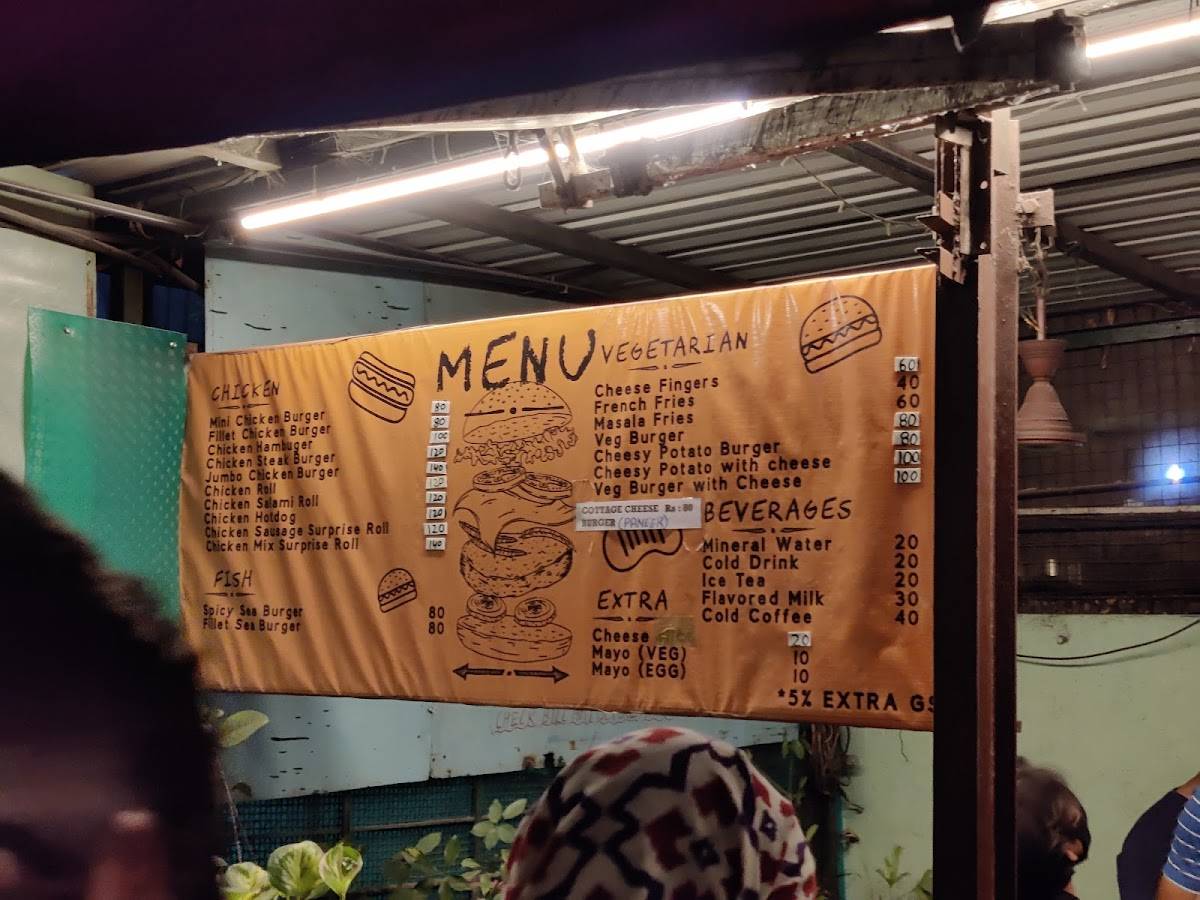 MENU
CHICKEN
Mini Chicken Burger 80
Fillet Chicken Burger 80
Chicken Hambuger 100
Chicken Steak Burger 120
Jumbo Chicken Burger 140
Chicken Roll 120
Chicken Salami Roll 120
Chicken Hotdog 120
Chicken Sausage Surprise Roll 120
Chicken Mix Surprise Roll 140
FISH
Spicy Sea Burger 80
Fillet Sea Burger 80
VEGETARIAN
Cheese Fingers 60
French Fries 40
Masala Fries 60
Veg Burger 80
Cheesy Potato Burger 80
Cheesy Potato with cheese 100
Veg Burger with Cheese 100
COTTAGE CHEESE Rs : 80
BURGER (PANEER)
BEVERAGES
Mineral Water 20
Cold Drink 20
Ice Tea 20
Flavored Milk 30
Cold Coffee 40
EXTRA
Cheese 20
Mayo (VEG) 10
Mayo (EGG) 10
*5% EXTRA GS